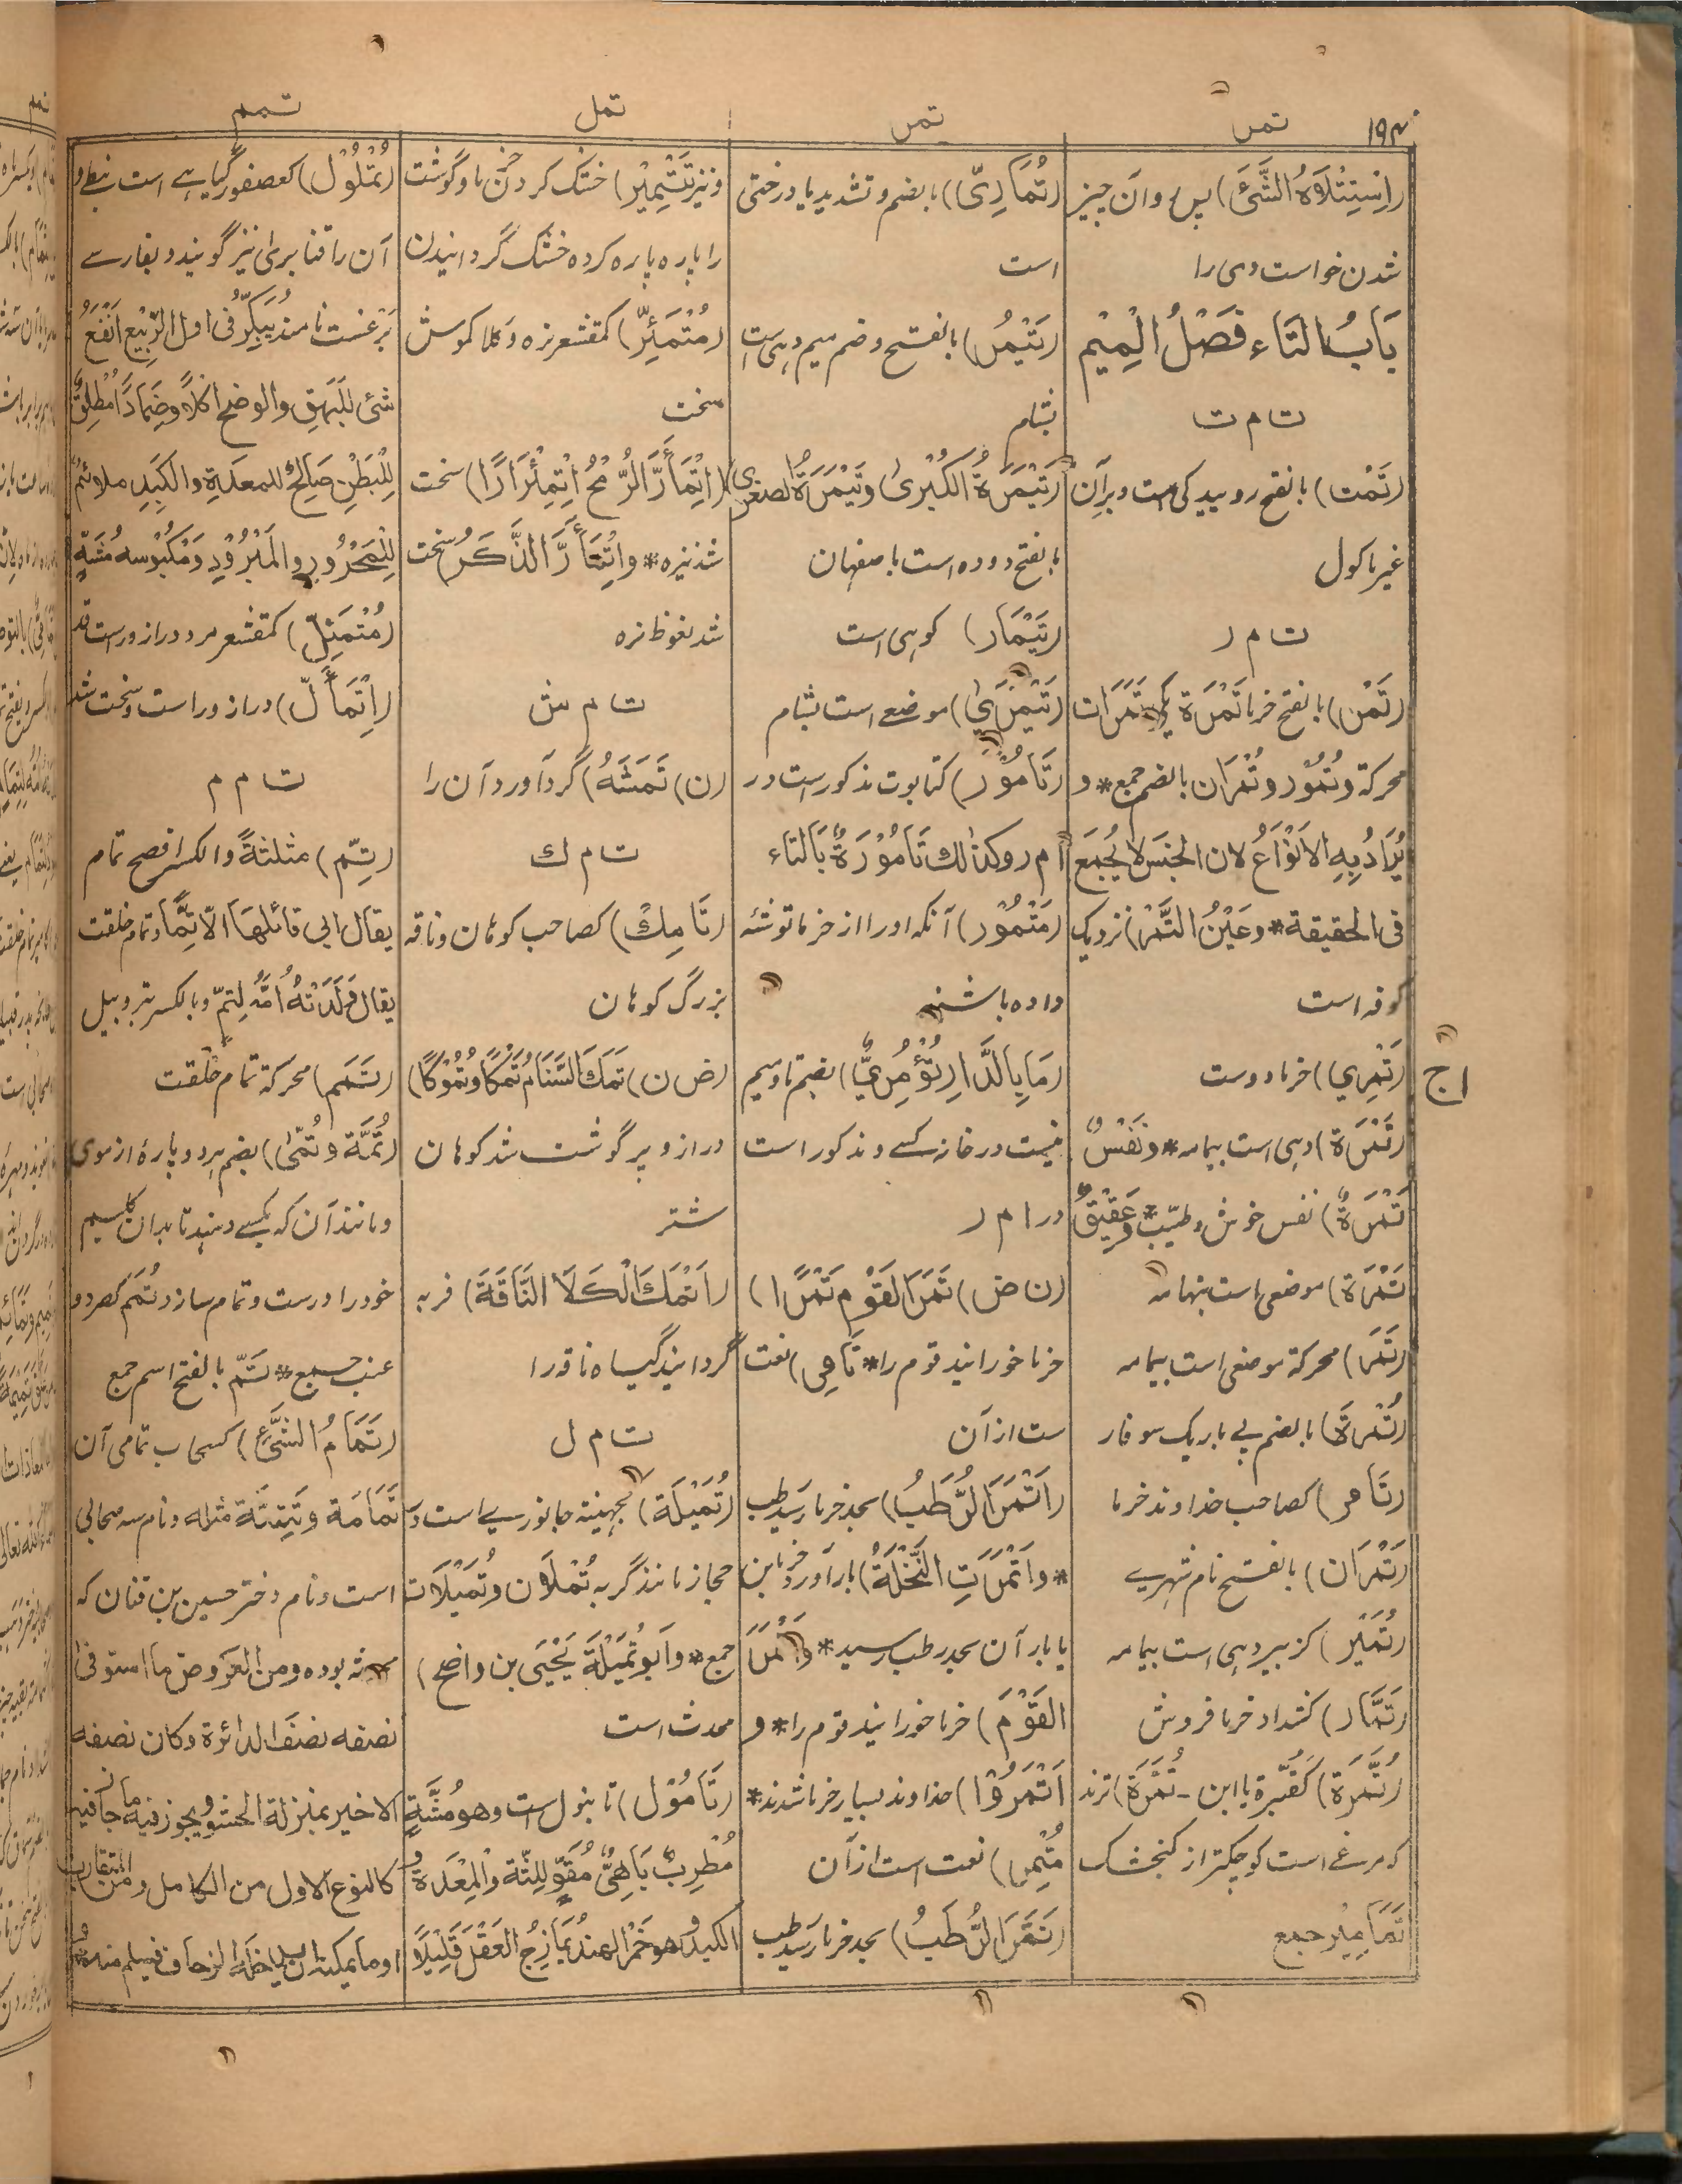 ۱۹۴
تمر
تمر
تمل
تمم
(اِسْتِتْلَاهُ الشَّیْءَ) پس وآن چیز
شدن خواست وی را
بَابُ التَّاءِ فَصْلُ الْمِیْم
ت م ت
(تَمْت) بالفتح روییدگی است وبرآن
غیر ماکول
ت م ر
(تَمْر) بالفتح خرما تَمْرَة یکی تَمَرَات
محرکة وتُمُوْر وتُمْرَان بالضم جمع * و
یُرَادُ بِهِ الاَنْوَاعُ لان الجنس لا یُجْمَع
فی الحقیقة * وعَیْنُ التَّمْر) نزدیک
کوفه است
(تَمْرِي) خرما دوست
(تَمْرَة) دهی است بیمامه * ونَفْسٌ
تَمْرَةٌ) نفس خوش وطیّب * وعَقِیْقُ
تَمْرَة) موضعی است بتهامه
(تَمَر) محرکة موضعی است بیمامه
(تُمْرَة) بالضم پی باریک سوفار
(تَامر) کصاحب خداوند خرما
(تَمْرَان) بالفتح نام شهری
(تُمَیْر) کزبیر دهی است بیمامه
(تَمَّار) کشداد خرما فروش
(تُمَّرَة) کَقُبَّرة یا ابن - تُمَّرَة) نزد
مرغے است کوچکتر از کنجشک
تَمَامِیْر جمع
(تُمَارِیّ) بالضم وتشدید یا درختی
است
(تَیْمُر) بالفتح وضم میم دهی است
بشام
(تَیْمَرَةُ الکُبْرٰی وتَیْمَرَةُ الصغری)
بالفتح دو ده است باصفهان
(تَیْمَار) کوهی است
(تَیْمَرٰی) موضعے است بشام
(تَامُوْر) کتابوت مذکور است در
ا م ر وکذٰلك تَامُوْرَةٌ بَالتاء
(مَتْمُوْر) آنکه اورا از خرما توشه
داده باشند
(مَا بِالدَّارِ تُؤْمُرِيٌّ) بضم تا ومیم
نیست در خانه کسے ومذکور است
در ا م ر
(ن ض) تَمَرَ القَوْمَ تَمْرًا)
خرما خورانید قوم را * تَامِر) نعت
ست ازآن
(اَتْمَرَ الرُّطَبُ) بحد خرما رسید رطب
* واَتْمَرَتِ النَّخْلَةُ) بارآورد خرمابن
یا بار آن بحد رطب رسید * واَتْمَرَ
القَوْمَ) خرما خورانید قوم را * و
اَتْمَرُوْا) خداوند بسیار خرما شدند *
مُتْمِر) نعت است ازآن
(تَتَمَّرَ الرُّطَبُ) بحد خرما رسید رطب
ونیز تَتْمِیْر) خشک کردن خرما وگوشت
را پاره پاره کرده خشک گردانیدن
(مُتْمَئِرّ) کمقشعر نره وکلاکموش
سخت
(اِتْمَأَرَّ الرُّمْحُ اِتْمِئْرَارًا) سخت
شد نیزه * واِتْمَأَرَّ الذَّکَرُ) سخت
شد نغوظ نره
ت م ش
(ن) تَمَشَهُ) گرد آورد آن را
ت م ك
(تَامِكْ) کصاحب کوهان وناقه
بزرگ کوهان
(ض ن) تَمَكَ السَّنَامُ تَمْکًا وتُمُوْکًا)
دراز وپر گوشت شد کوهان
شتر
(اَتْمَكَ الْکَلَأ النَّاقَةَ) فربه
گردانید گیاه ناقه را
ت م ل
(تُمَیْلَة) کجهینة جانورے است در
حجاز مانند گربه تُمْلَان وتُمَیْلَات
جمع * واَبُوْتُمَیْلَةَ یَحْیَی بن واضح)
محدث است
(تَامُوْل) تانبول است وهو مُشَهٍّ
مُطْرِبٌ بَاهِیٌّ مُقَوٍّ لِلثّة والْمِعْدَة و
الکبد وهو خَمْرُ الهند یُمَازِجُ العَقْلَ قَلِیْلًا
(تُمْلُوْل) کعصفور گیاہے است نبطے و
آن را قنابری نیز گویند وبفارسے
بَرْغَست نامند یُبَکِّرُ فی اول الرَّبِیْع اَنْفَعُ
شئ لِلْبَهَقِ والوضح اکلًا وضِمَادًا مُطْلِقٌ
لِلْبَطْنِ صَالِحٌ للمعدة والکَبِد ملائم
لِلْمَحْرُوْرِ والمَبْرُوْدِ وَمَکْبُوْسه مُشَهٍّ
(مُتْمَئِلّ) کمقشعر مرد دراز وراست قد
(اِتْمَأَلّ) دراز وراست وسخت شد
ت م م
(تِمّ) مثلثةً والکسر افصح تمام
یقال ابی قائلهَا الّا تِمًّا وتمام خلقت
یقال وَلَدَتْهُ اُمُّهُ لِتِمٍّ وبالکسر تبر وبیل
(تَمَم) محرکة تمام خلقت
(تُمَّة وتُمّٰی) بضم هردو پارۂ از موی
ومانند آن که بکسے دهند تا بدان گلیم
خود را درست وتمام سازد تُمَم کصرد و
عنب جمع * تَمّ بالفتح اسم جمع
(تَمَامُ الشَّیْءِ) کسحاب تمامی آن
تَمَامَة وتَتِمَّة مثله ونام سه صحابی
است ونام دختر حسین بن قنان که
محدثه بوده ومن العروض ما استوفی
نصفه نصف الدائرة وکان نصفه
الاخیر بمنزلة الحشو ویجوز فیه ما جاز فیه
کالنوع الاول من الکامل ومن المتقارب
اوما یمکن ان یدخله الزحاف فیسلم منه
ا ج